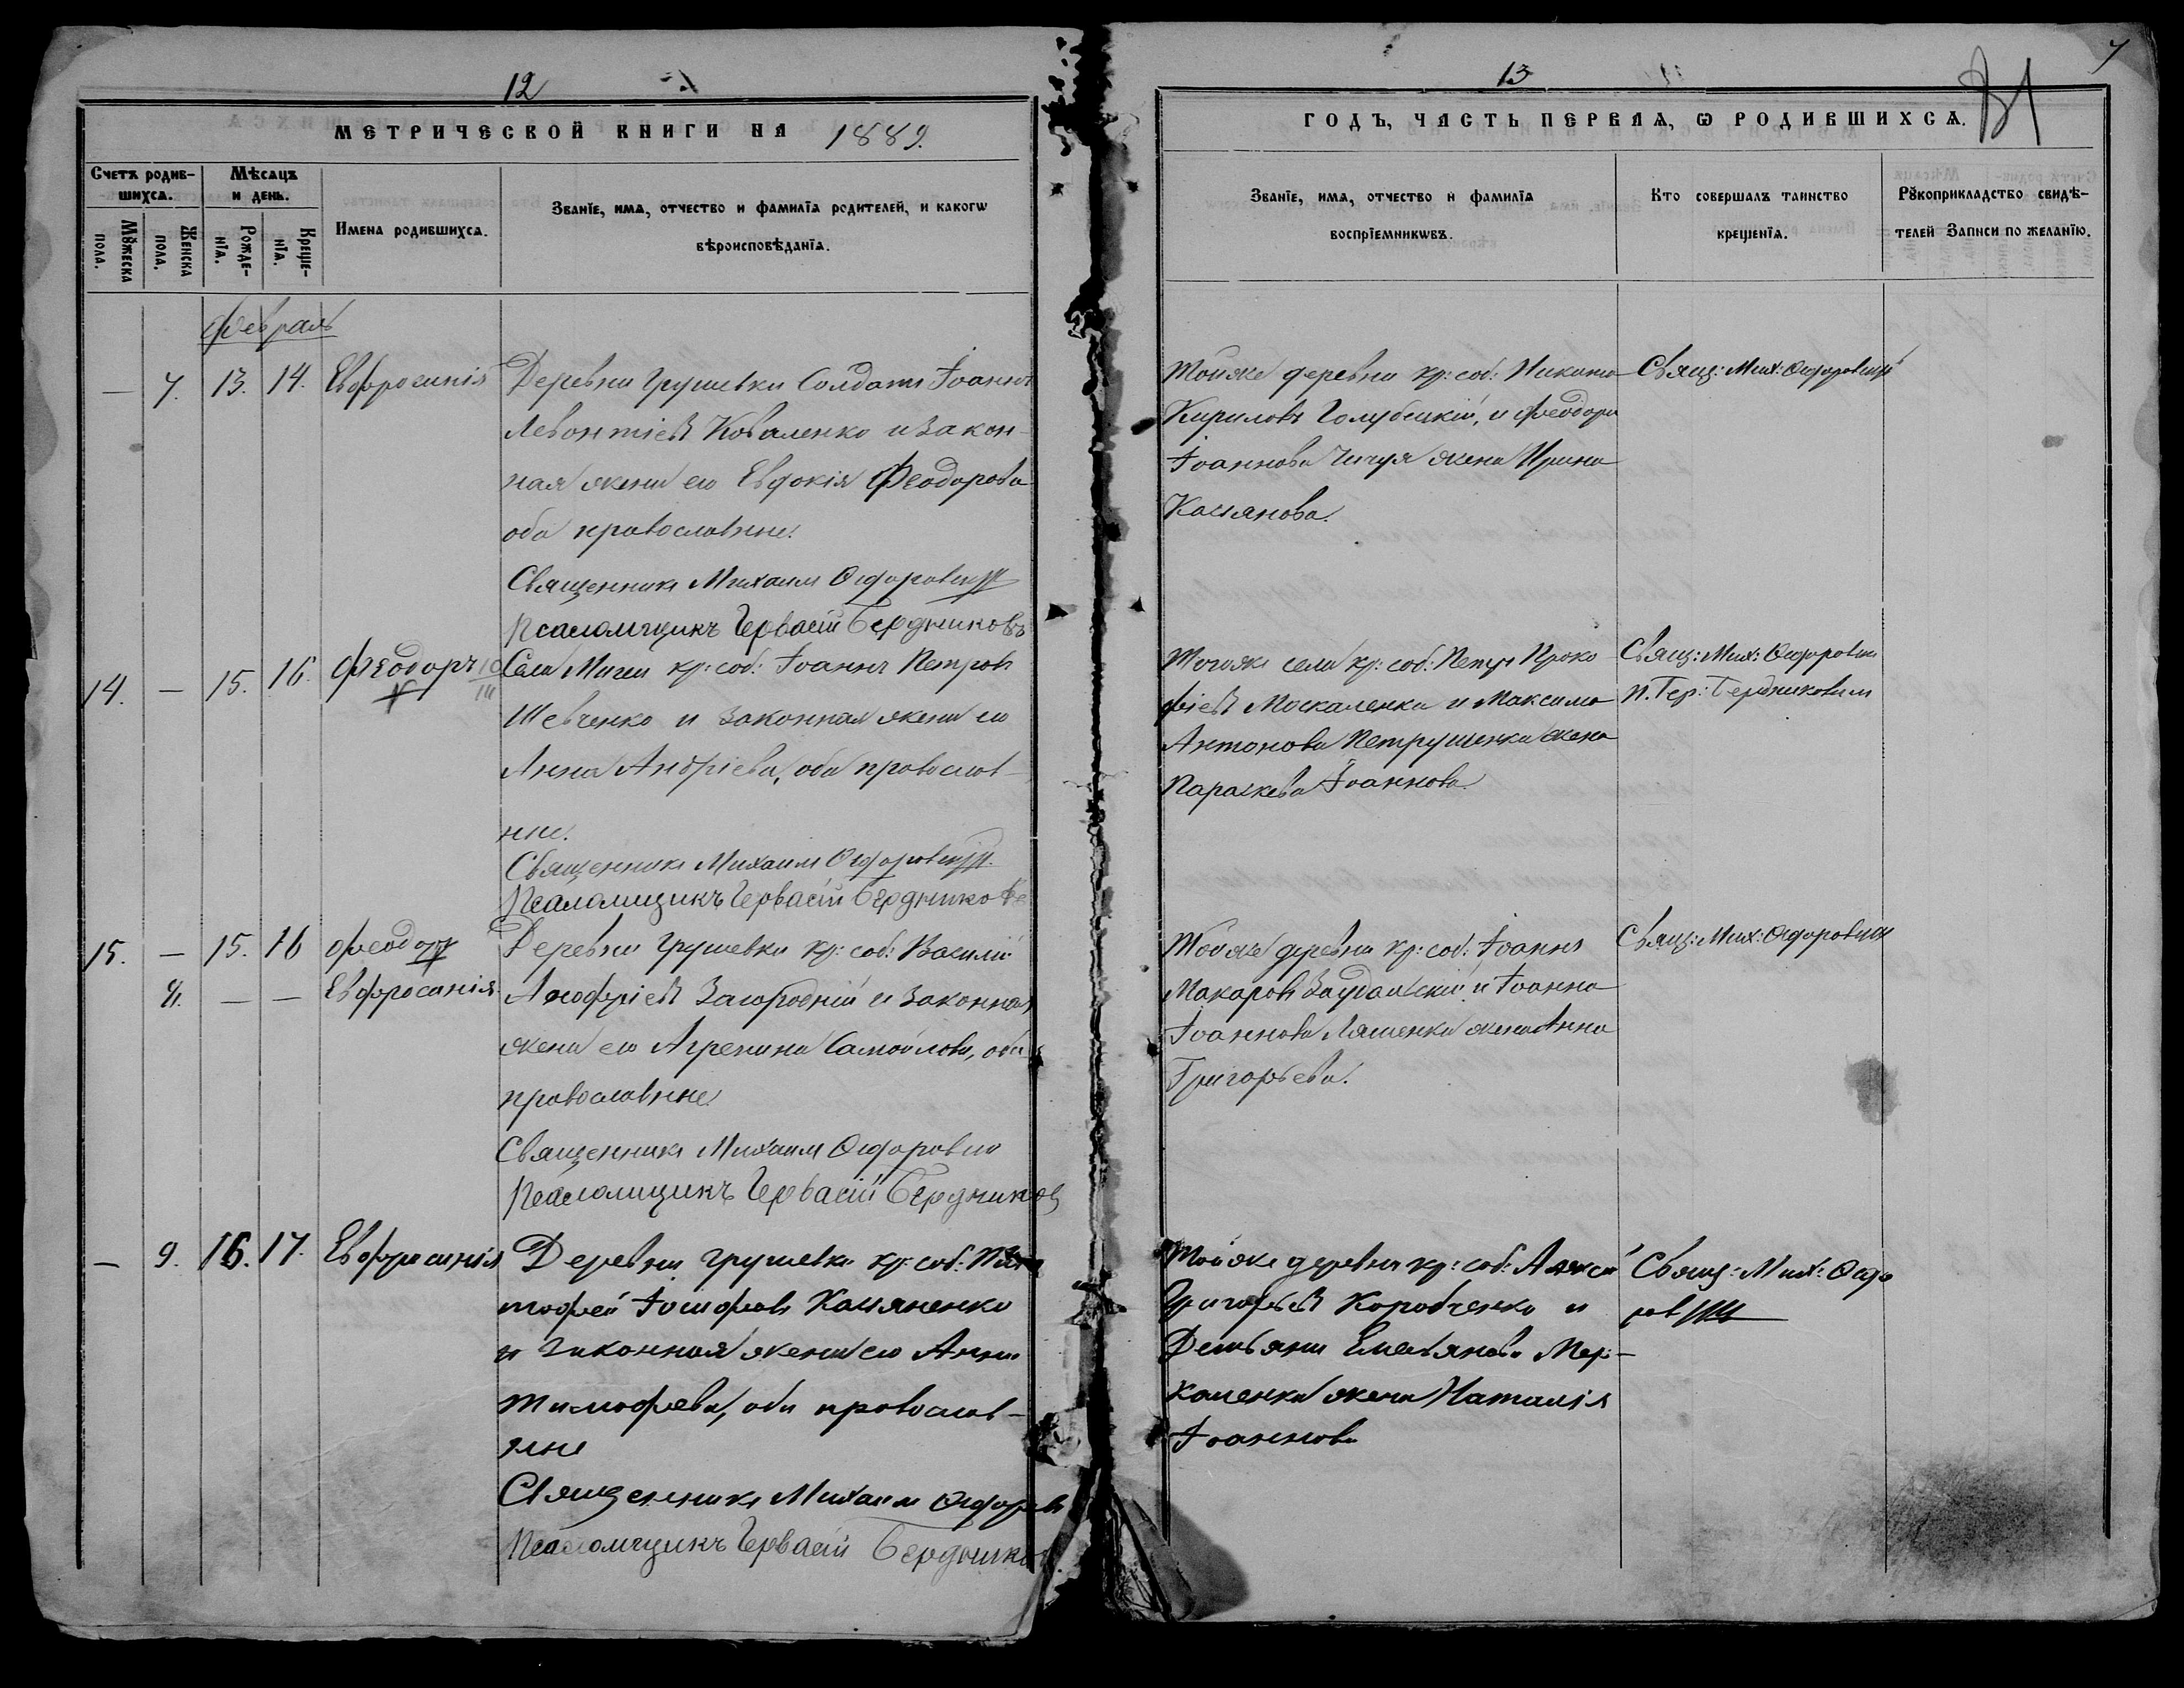 12
МЕТРИЧЕСКОЙ КНИГИ НА 1889.
Счетъ родив-
шихсѧ.
Мѣсѧцъ
и день.
Мꙋжеска
пола.
Женска
пола.
Рожде-
нїѧ.
Креще-
нїѧ.
Имена родившихсѧ.
Званїе, имѧ, отчество и фамилїѧ родителей, и какогѡ
вѣроисповѣданїѧ.
Февраль
— 7. 13. 14. Евфросинія
Деревни Грушевки Солдатъ Іоаннъ
Левонтіевъ Коваленко и закон-
ная жена его Евдокія Феодорова
оба православные.
Священникъ Михаилъ
Псаломщикъ Герваcій Бердниковъ
14. — 15. 16. Феодоръ
Села Мигеи кр: соб: Іоаннъ Петровъ
Шевченко и законная жена его
Анна Андріева, оба православ-
ные.
Священникъ Михаилъ
Псаломщикъ Гервасій Бердниковъ
15. — 15. 16 Феодоръ
8. — — Евфросинія
Деревни Грушевки кр: соб: Василій
Загородній и законная
жена его Агрепина Самойлова, оба
православные
Священникъ Михаилъ
Псаломщикъ Гервасій Бердников
— 9. 16. 17. Евфросинія
Деревни Грушевки кр: соб:
Іосифовъ Касяненко
и законная жена его Анна
Тимофеева, оба православ-
ные
Священникъ Михаилъ
Псаломщикъ Гервасій Бердников
7
13
31
ГОДЪ, ЧАСТЬ ПЕРВАѦ, Ѡ РОДИВШИХСѦ.
Званїе, имѧ, отчество и фамилїѧ
воспрїемникѡвъ.
Кто совершалъ таинство
крещенїѧ.
Рꙋкоприкладство свидѣ-
телей Записи по желанїю.
Тойже деревни кр: соб: Никита
Кириловъ Голубецкій, и Феодора
Іоаннова жена Ирина
Касянова.
Свящ: Мих:
Тогоже села кр: соб: Петръ Проко
фіевъ Москаленко и Максима
Антонова Петрушенка жена
Параскева Іоаннова.
Свящ: Мих:
п. Гер: Бердниковым
Тойже деревни кр: соб: Іоаннъ
Макаровъ и Іоанна
Іоаннова Ляшенка жена Анна
Григорьева.
Свящ: Мих:
Тойже деревни кр: соб: Алексѣй
Григорьевъ Коробченко и
Демьяна Емельянова Мер-
каленка жена Наталія
Іоаннова
Свящ: Мих: